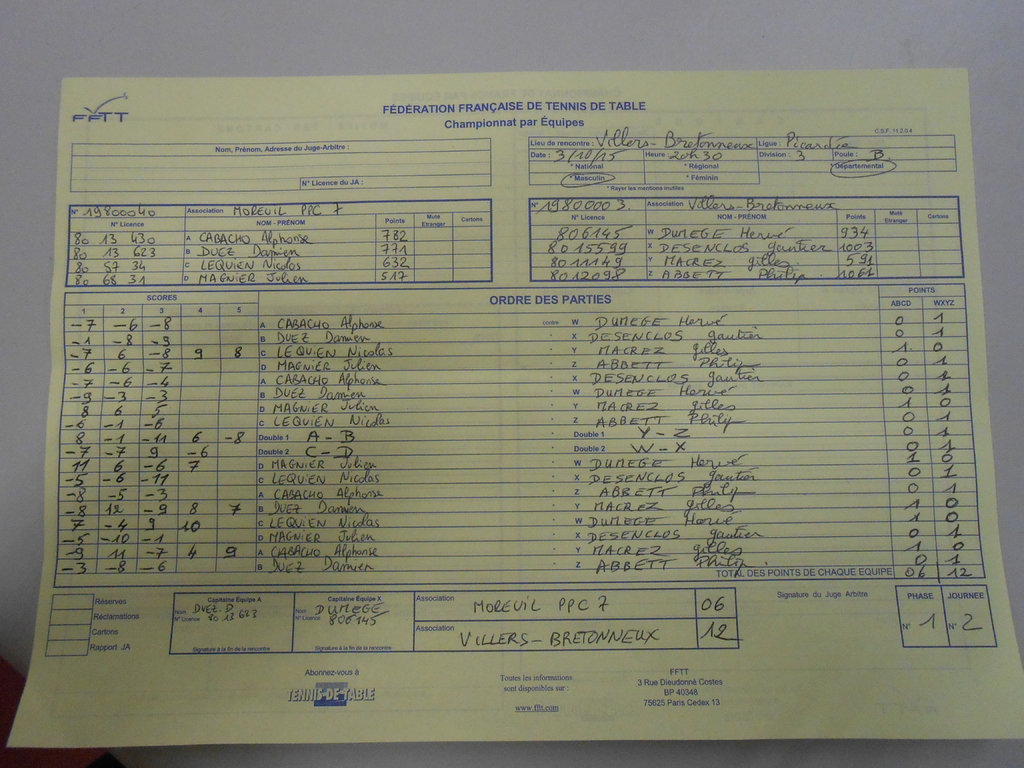 FFTT
FÉDÉRATION FRANÇAISE DE TENNIS DE TABLE
Championnat par Équipes
C.S.F. 11.2.0.4
Nom, Prénom, Adresse du Juge-Arbitre :
N° Licence du JA :
Lieu de rencontre : Villers-Bretonneux Ligue : Picardie
Date : 3/10/15 Heure : 20h30 Division : 3 Poule : B
* National * Régional * Départemental
* Masculin * Féminin
* Rayer les mentions inutiles
N° 19800040 Association MOREUIL PPC 7
N° Licence NOM - PRÉNOM Points Muté Etranger Cartons
80 13 430 A CABACHO Alphonse 782
80 13 623 B DUEZ Damien 771
80 57 34 C LEQUIEN Nicolas 632
80 68 31 D MAGNIER Julien 517
N° 1980000 3. Association Villers-Bretonneux
N° Licence NOM - PRÉNOM Points Muté Etranger Cartons
806145 W DUMEGE Hervé 934
8015599 X DESENCLOS gautier 1003
8011149 Y MACREZ gilles. 591
8012098 Z ABBETT Philip. 1061
SCORES ORDRE DES PARTIES POINTS
1 2 3 4 5 ABCD WXYZ
-7 -6 -8 A CABACHO Alphonse contre W DUMEGE Hervé 0 1
-1 -8 -9 B DUEZ Damien " X DESENCLOS gautier 0 1
-7 6 -8 9 8 C LEQUIEN Nicolas " Y MACREZ gilles 1 0
-6 -6 -7 D MAGNIER Julien " Z ABBETT Philip 0 1
-7 -6 -4 A CABACHO Alphonse " X DESENCLOS gautier 0 1
-9 -3 -3 B DUEZ Damien " W DUMEGE Hervé 0 1
8 6 5 D MAGNIER Julien " Y MACREZ gilles 1 0
-6 -1 -6 C LEQUIEN Nicolas " Z ABBETT Philip 0 1
8 -1 -11 6 -8 Double 1 A-B " Double 1 Y-Z 0 1
-7 -7 9 -6 Double 2 C-D " Double 2 W-X 0 1
11 6 -6 7 D MAGNIER Julien " W DUMEGE Hervé 1 0
-5 -6 -11 C LEQUIEN Nicolas " X DESENCLOS gautier 0 1
-8 -5 -3 A CABACHO Alphonse " Z ABBETT Philip 0 1
-8 12 -9 8 7 B DUEZ Damien " Y MACREZ gilles 1 0
7 -4 9 10 C LEQUIEN Nicolas " W DUMEGE Hervé 1 0
-5 -10 -1 D MAGNIER Julien " X DESENCLOS gautier 0 1
-9 11 -7 4 9 A CABACHO Alphonse " Y MACREZ gilles 1 0
-3 -8 -6 B DUEZ Damien " Z ABBETT Philip 0 1
TOTAL DES POINTS DE CHAQUE EQUIPE 06 12
Réserves
Réclamations
Cartons
Rapport JA
Capitaine Équipe A
Nom DUEZ. D
N° Licence 80 13 623
Signature à la fin de la rencontre
Capitaine Équipe X
Nom DUMEGE
N° Licence 806145
Signature à la fin de la rencontre
Association MOREUIL PPC 7 06
Association VILLERS-BRETONNEUX 12
Signature du Juge Arbitre
PHASE JOURNEE
N° 1 N° 2
Abonnez-vous à
TENNIS DE TABLE
Toutes les informations
sont disponibles sur :
www.fftt.com
FFTT
3 Rue Dieudonné Costes
BP 40348
75625 Paris Cedex 13